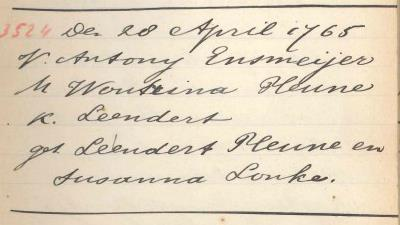 3524 Den 28 April 1765
V. Antony Ensmeijer
M Woutrina Pleune
K. Leendert
get Leendert Pleune en
Susanna Lonke.